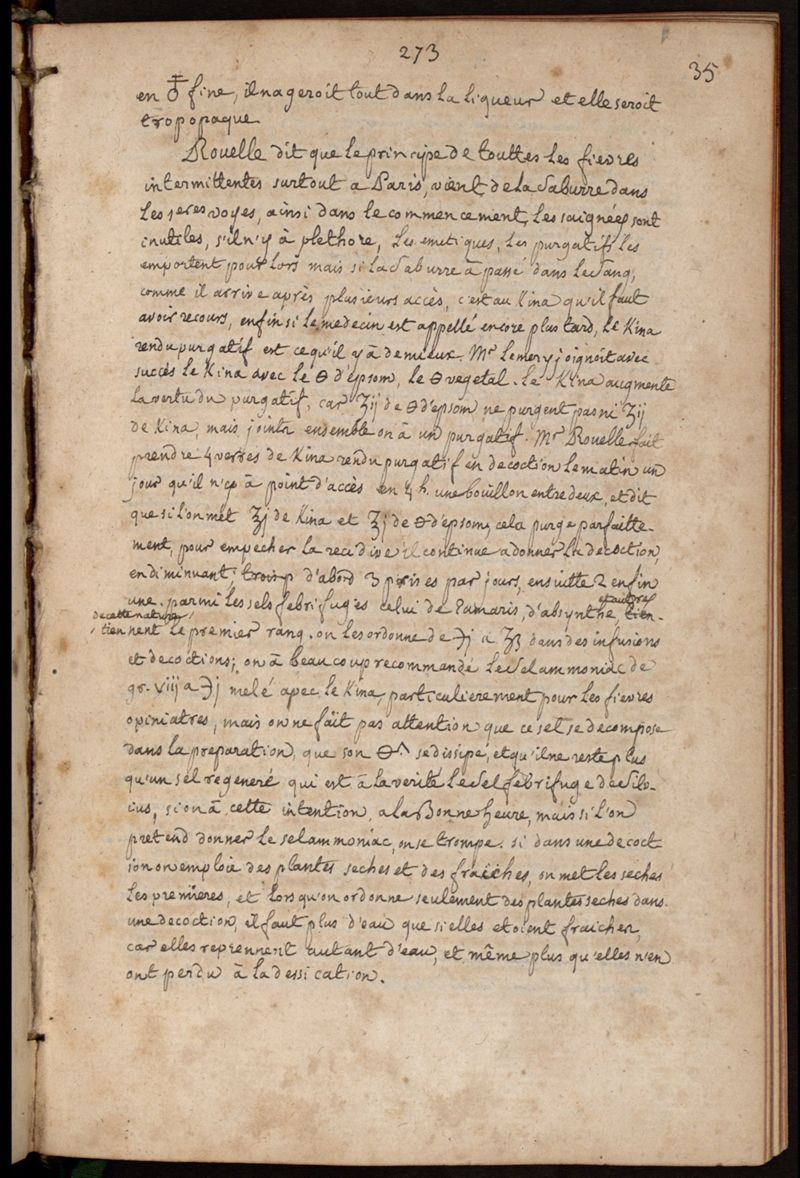 273
35
en ♁ fine, il nageroit tout dans la liqueur et elle seroit
trop opaque.
Rouelle dit que le principe de touttes les fievres
intermittentes surtout a Paris, vient de la saburre dans
les 1eres voyes, ainsi dans le commencement, les saignées sont
inutiles, s'il n'y à plethore, les emetiques, les purgatifs les
emportent pour lors mais si la saburre à passé dans le sang,
comme il arrive après plusieurs accès, c'est au Kina qu'il faut
avoir recours, enfin si le medecin est appellé encore plus tard, le Kina
rendu purgatif est ce qu'il y à de mieux. Mr Lemery joignoit avec
succès le Kina avec le ⊖ d'epsom, le ⊖ vegetal. le Kina augmente
la vertu du purgatif, car ʒij de ⊖ d'epsom ne purgent pas ni ʒij
de Kina, mais joints ensemble on à un purgatif. Mr Rouelle fait
prendre 4 verres de Kina rendu purgatif en decoction le matin un
jour qu'il n'y à point d'accès en 4 h. une bouillon entre deux, et dit
que si l'on met ʒj de Kina et ʒj de ⊖ d'epsom, cela purge parfaitte-
ment, pour empecher la recidive il continue a donner la decoction,
en diminuant; d'abord 3 prises par jours, ensuitte 2 enfin
une. parmi les sels febrifuges celui de Tamaris, d'absynthe, et autres
de cette nature
tiennent le premier rang. on les ordonne de ℈j à ʒß dans des infusions
et decoctions; on à beaucoup recommandé le sel ammoniac de
gr. viij a ℈j melé avec le Kina, particulierement pour les fievres
opiniatres, mais on ne fait pas attention que ce sel se decompose
dans la preparation, que son ⊖^ se dissipe, et qu'il ne reste plus
qu'un sel regeneré qui est à la verité le sel febrifuge de Silo-
cius, si on à cette intention, a la Bonne heure, mais si l'on
pretend donner le sel ammoniac, on se trompe. si dans une decoct
ion on emploie des plantes seches et des fraiches, on met les seches
les premieres, et lorsqu'on ordonne seulement des plantes seches dans
une decoction, il faut plus d'eau que si elles etoient fraiches,
car elles reprennent autant d'eau, et même plus qu'elles n'en
ont perdu à la dessication.